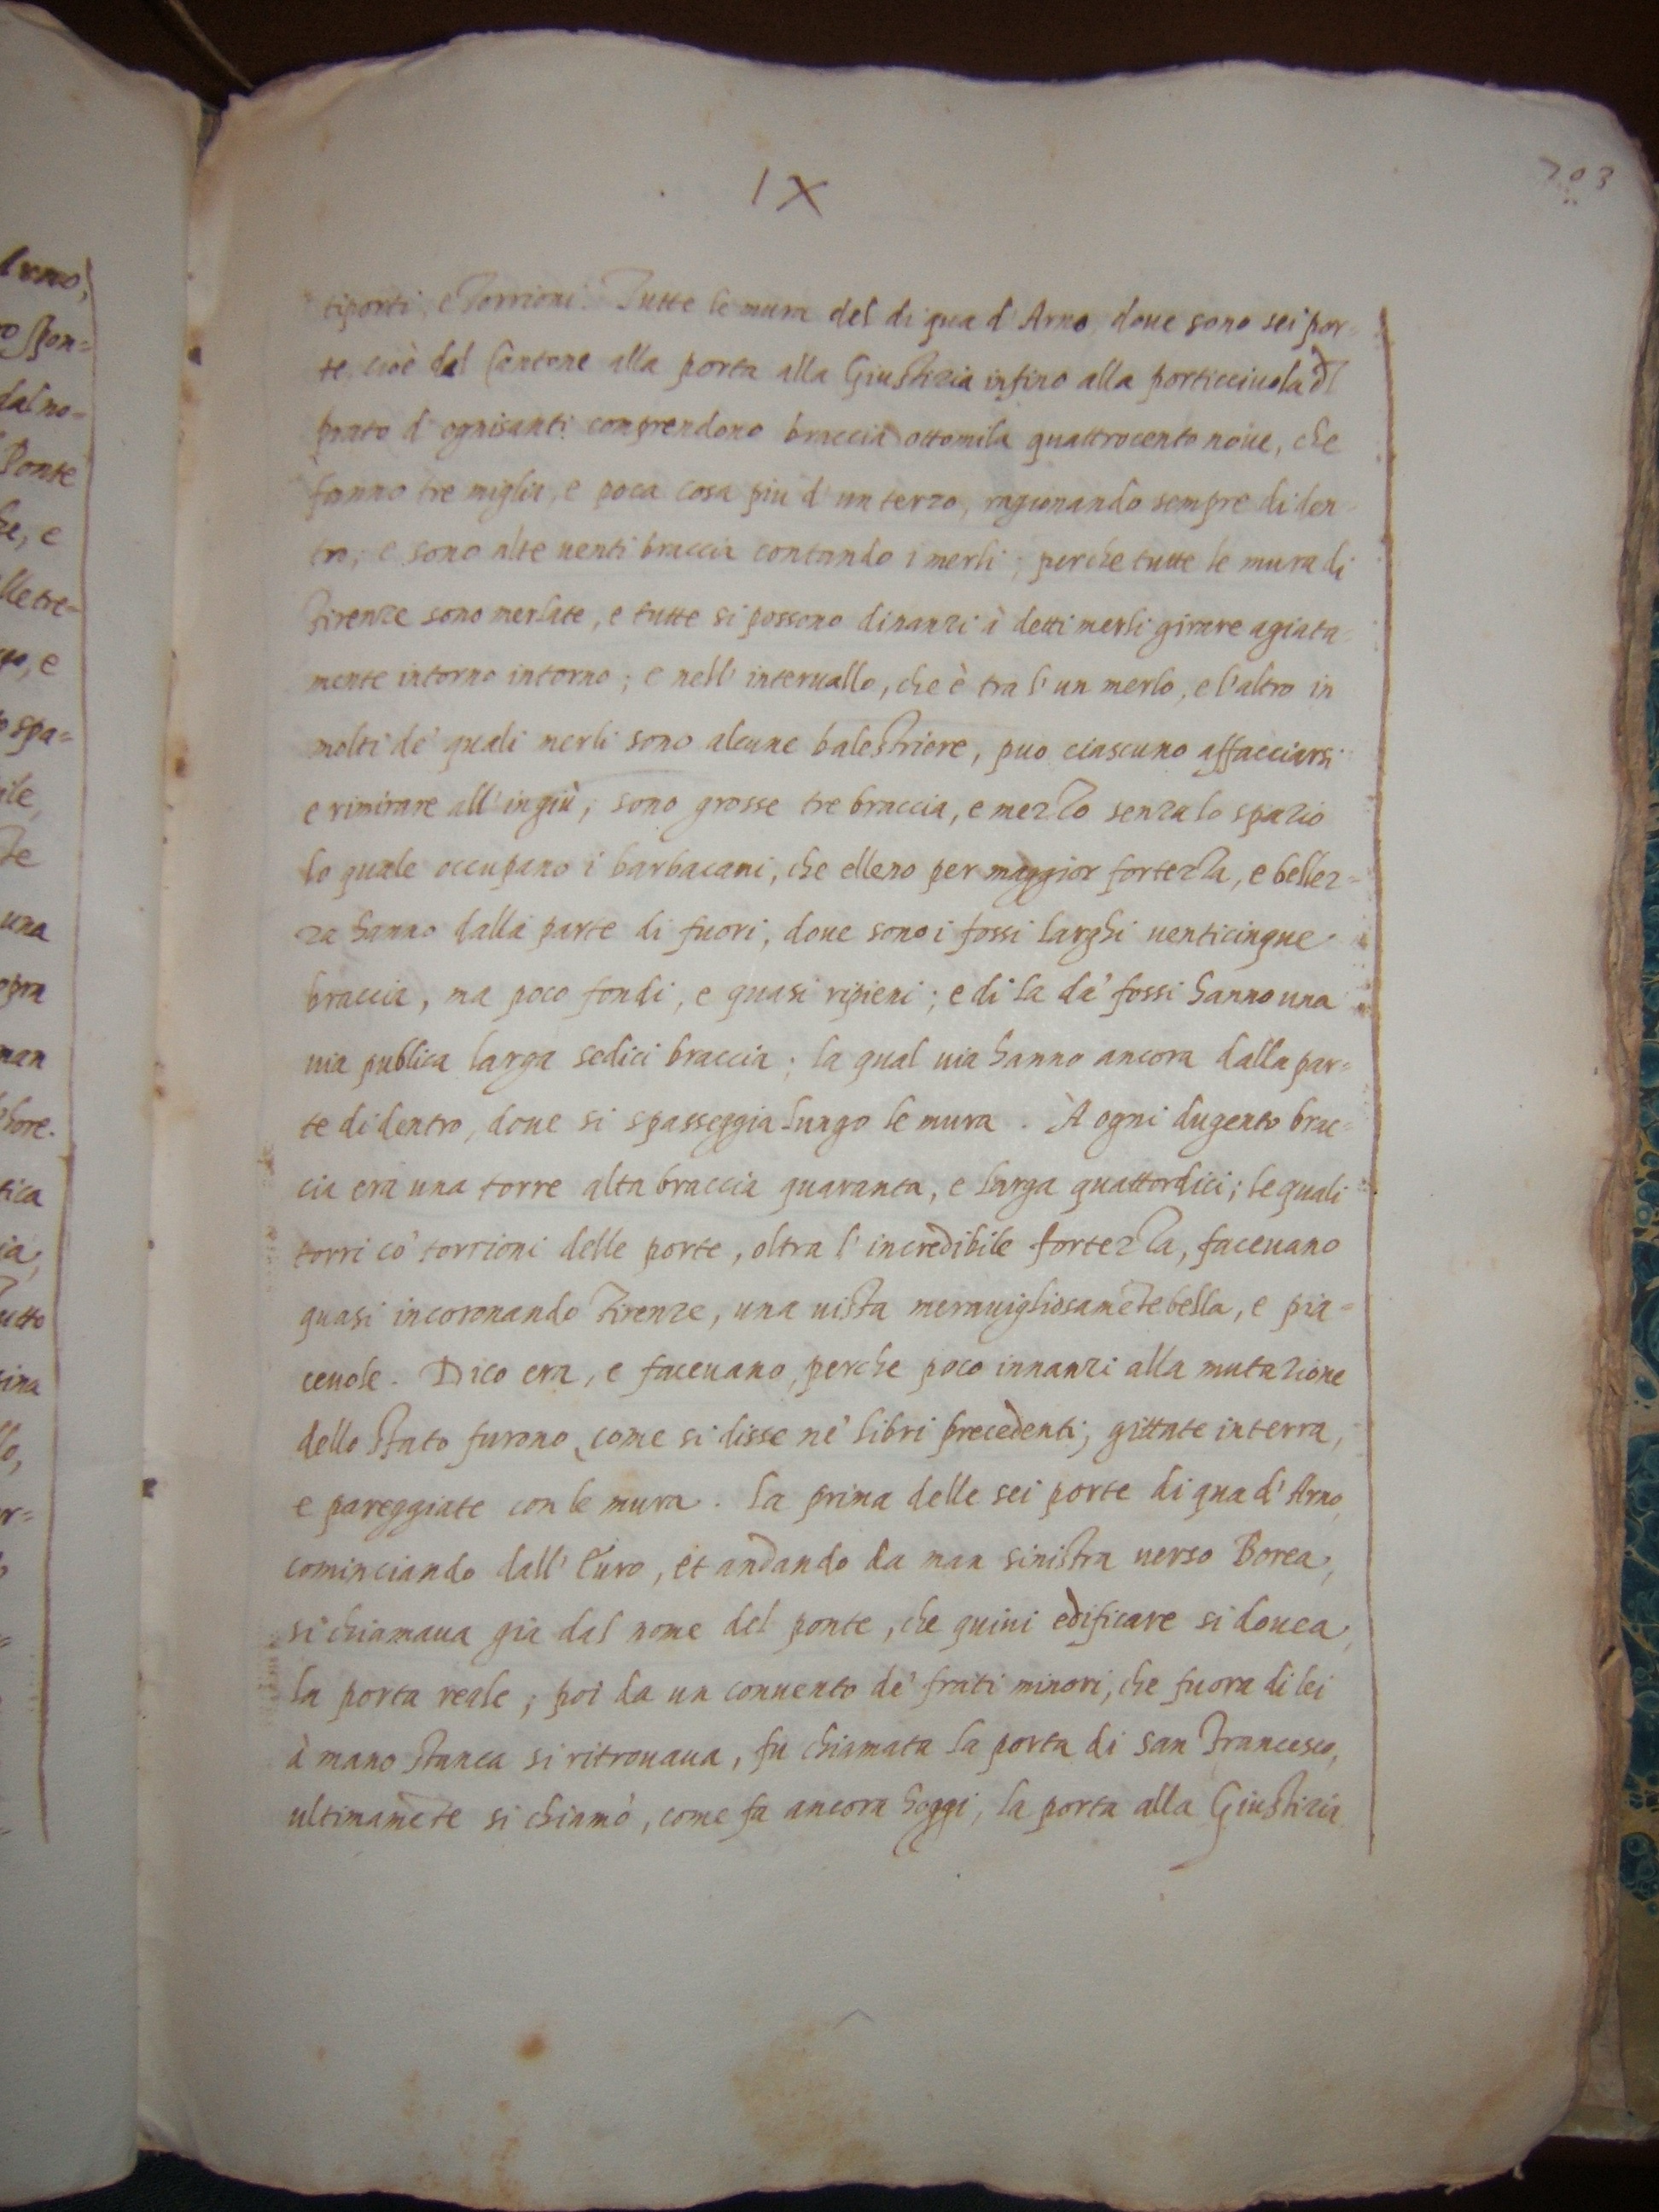 IX
203
tiporti, e Torrioni. Tutte le mura del di qua d'Arno, doue sono sei por=
te, cioè dal Cantone alla porta alla Giustizia infino alla porticciuola dl
prato d'ognisanti comprendono braccia ottomila quattrocento noue, che
fanno tre miglia, e poca cosa piu d'un terzo, ragionando sempre di den=
tro; e sono alte uenti braccia contando i merli; perche tutte le mura di
Firenze sono merlate, e tutte si possono dinanzi à detti merli girare agiata=
mente intorno intorno; e nell'interuallo, che è tra l'un merlo, e l'altro in
molti de' quali merli sono alcune balestriere, puo ciascuno affacciarsi
e rimirare all'ingiù; sono grosse tre braccia, e mezzo senza lo spazio
lo quale occupano i barbacani, che elleno per maggior fortezza, e bellez=
za hanno dalla parte di fuori, doue sono i fossi larghi uenticinque
braccia, ma poco fondi, e quasi ripieni; e di la da' fossi hanno una
uia publica larga sedici braccia; la qual uia hanno ancora dalla par=
te di dentro, doue si spasseggia lungo le mura. À ogni dugento brac=
cia era una torre alta braccia quaranta, e larga quattordici; le quali
torri co' torrioni delle porte, oltra l'incredibile fortezza, faceuano
quasi incoronando Firenze, una uista merauigliosamēte bella, e pia=
ceuole. Dico era, e faceuano, perche poco innanzi alla mutazione
dello stato furono, come si disse ne' libri precedenti, gittate in terra,
e pareggiate con le mura. La prima delle sei porte di qua d'Arno,
cominciando dall'Euro, et andando da man sinistra uerso Borea,
si chiamaua gia dal nome del ponte, che quiui edificare si douea,
la porta reale; poi da un conuento de' frati minori, che fuora di lei
à mano stanca si ritrouaua, fu chiamata la porta di san Francesco,
ultimamēte si chiamò, come fa ancora hoggi, la porta alla Giustizia